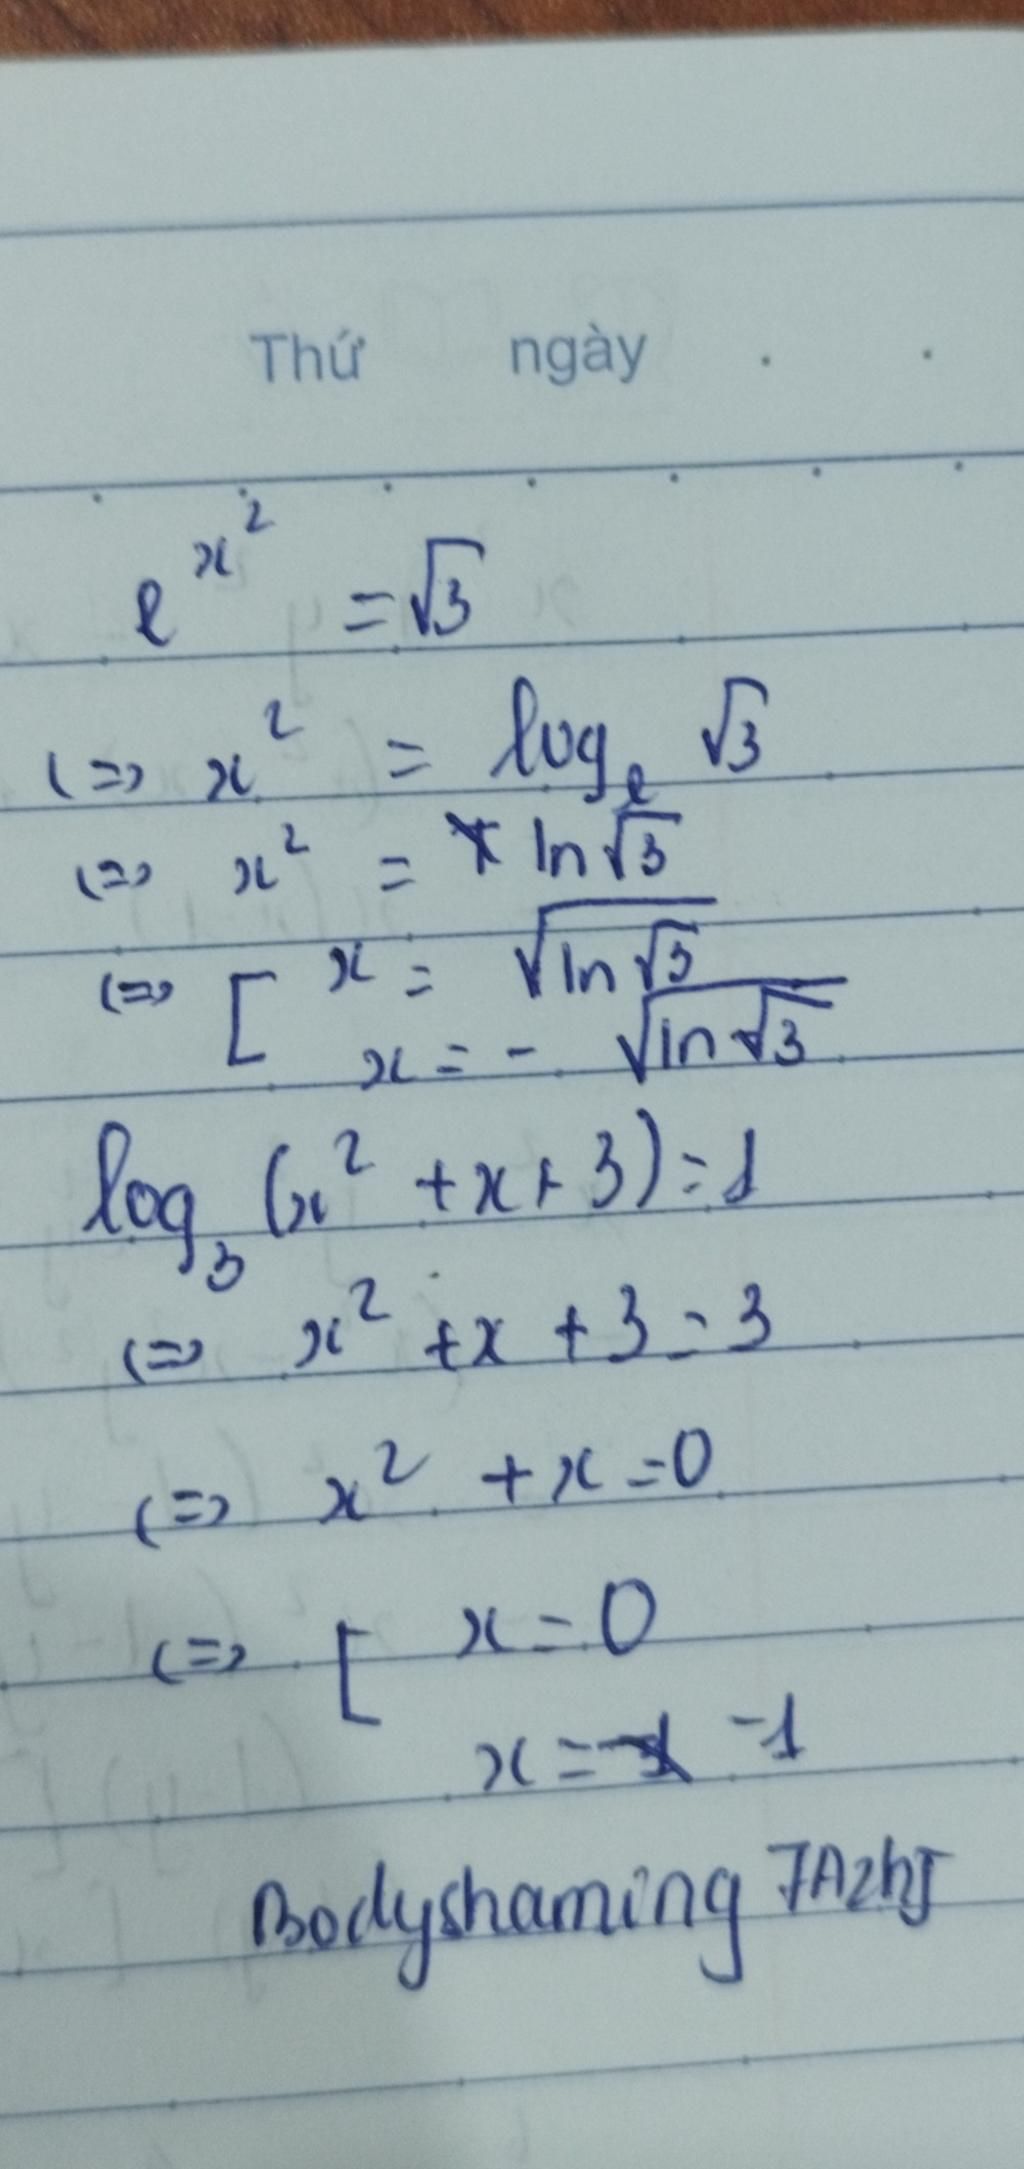 Thứ ngày
e^{x^2} = √3
<=> x² = log_e √3
<=> x² = ln √3
<=> [ x = √(ln √3)
x = - √(ln √3)
log_3 (x² + x + 3) = 1
<=> x² + x + 3 = 3
<=> x² + x = 0
<=> [ x = 0
x = -1
Bodyshaming